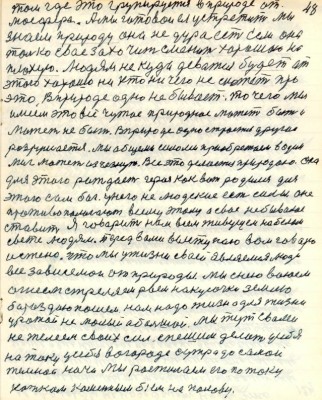 48
том где это групируется в природе ат-
мосфера. А мы готовои их устретить мы
знаем природу она не дура сеть сем она
толко свае захочит сменит харошою на
плохую. Людям не куда деватся будет от
этого харошо на кто ничего не скажет про
это, В природе одно не бывает. То чего мы
имеем это всё чужое природное может быть и
может не быть. В природе одно строится другое
разрушается. Мы общими силоми приобретаем в один
миг может исчезнут. Все это делается природою. Она
для этого рождает героя как вот родился для
этого сам бог. у него не людские есть силы оне
противо пологают всему этому а свае небывалое
ставит. Я говорит нам всем живущим на белом
свете людям. Перед вами выступаю вам говорю
истено. Что мы у жизни своей являемся люди
все зависемои от природы мы с нею воюем
огнем стреляем рвем на кусочки землю
бараздою пошем, нам надо жизня для жизни
урожай не малый а балшой. Мы тут своеи
не жалеем своих сил. спешим делать у себя
на току у себя в огороде с утра до самой
темной ночи Мы растилаем его по току
катком каменным бъем на полову.